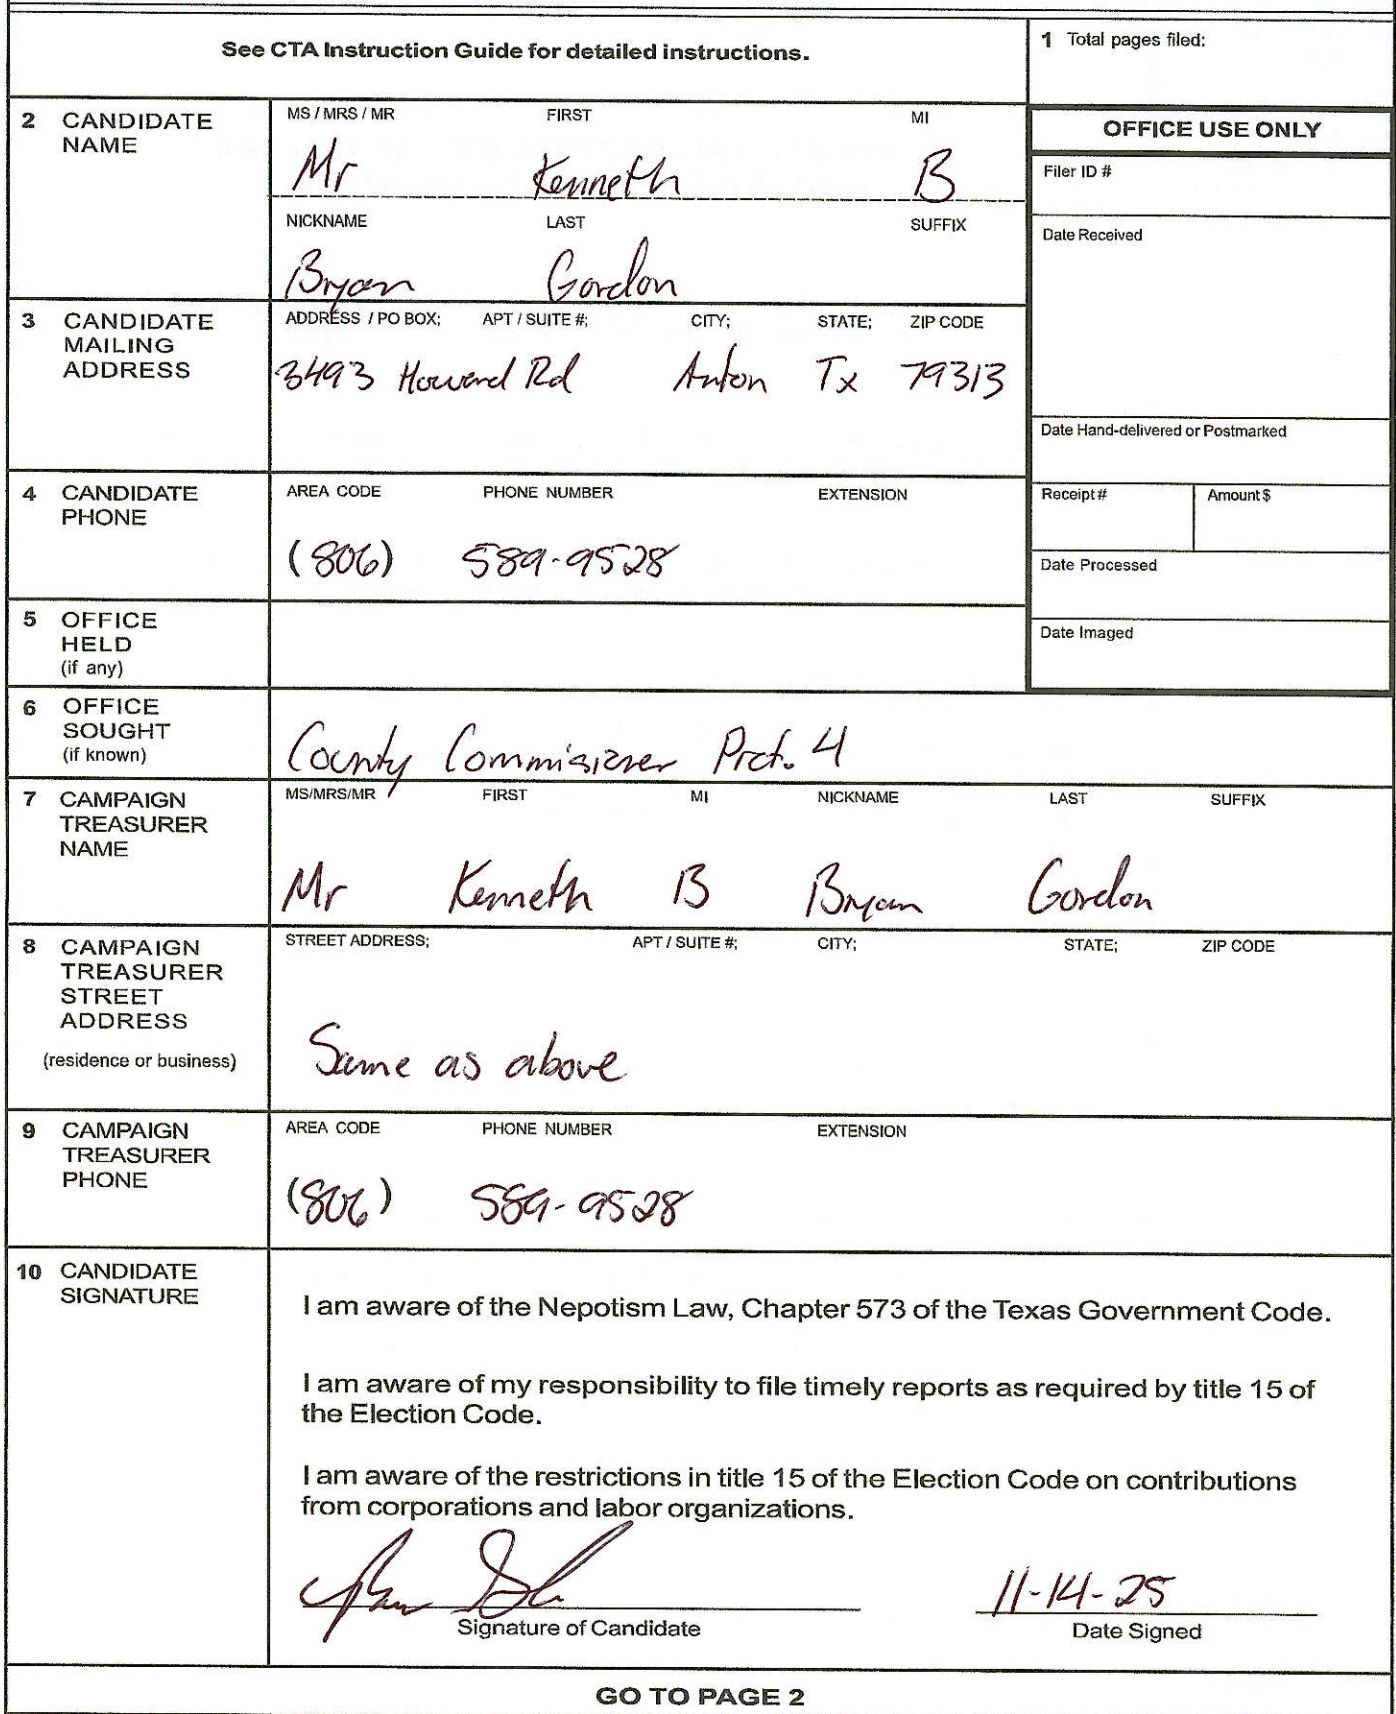 See CTA Instruction Guide for detailed instructions.
1 Total pages filed:
2 CANDIDATE NAME
MS / MRS / MR FIRST MI
Mr Kenneth B
NICKNAME LAST SUFFIX
Bryan Gordon
OFFICE USE ONLY
Filer ID #
Date Received
Date Hand-delivered or Postmarked
Receipt # Amount $
Date Processed
Date Imaged
3 CANDIDATE MAILING ADDRESS
ADDRESS / PO BOX; APT / SUITE #; CITY; STATE; ZIP CODE
3493 Howard Rd Anton Tx 79313
4 CANDIDATE PHONE
AREA CODE PHONE NUMBER EXTENSION
(806) 589-9528
5 OFFICE HELD
(if any)
6 OFFICE SOUGHT
(if known)
County Commisioner Prct. 4
7 CAMPAIGN TREASURER NAME
MS/MRS/MR FIRST MI NICKNAME LAST SUFFIX
Mr Kenneth B Bryan Gordon
8 CAMPAIGN TREASURER STREET ADDRESS
(residence or business)
STREET ADDRESS; APT / SUITE #; CITY; STATE; ZIP CODE
Same as above
9 CAMPAIGN TREASURER PHONE
AREA CODE PHONE NUMBER EXTENSION
(806) 589-9528
10 CANDIDATE SIGNATURE
I am aware of the Nepotism Law, Chapter 573 of the Texas Government Code.
I am aware of my responsibility to file timely reports as required by title 15 of
the Election Code.
I am aware of the restrictions in title 15 of the Election Code on contributions
from corporations and labor organizations.
11-14-25
Signature of Candidate Date Signed
GO TO PAGE 2